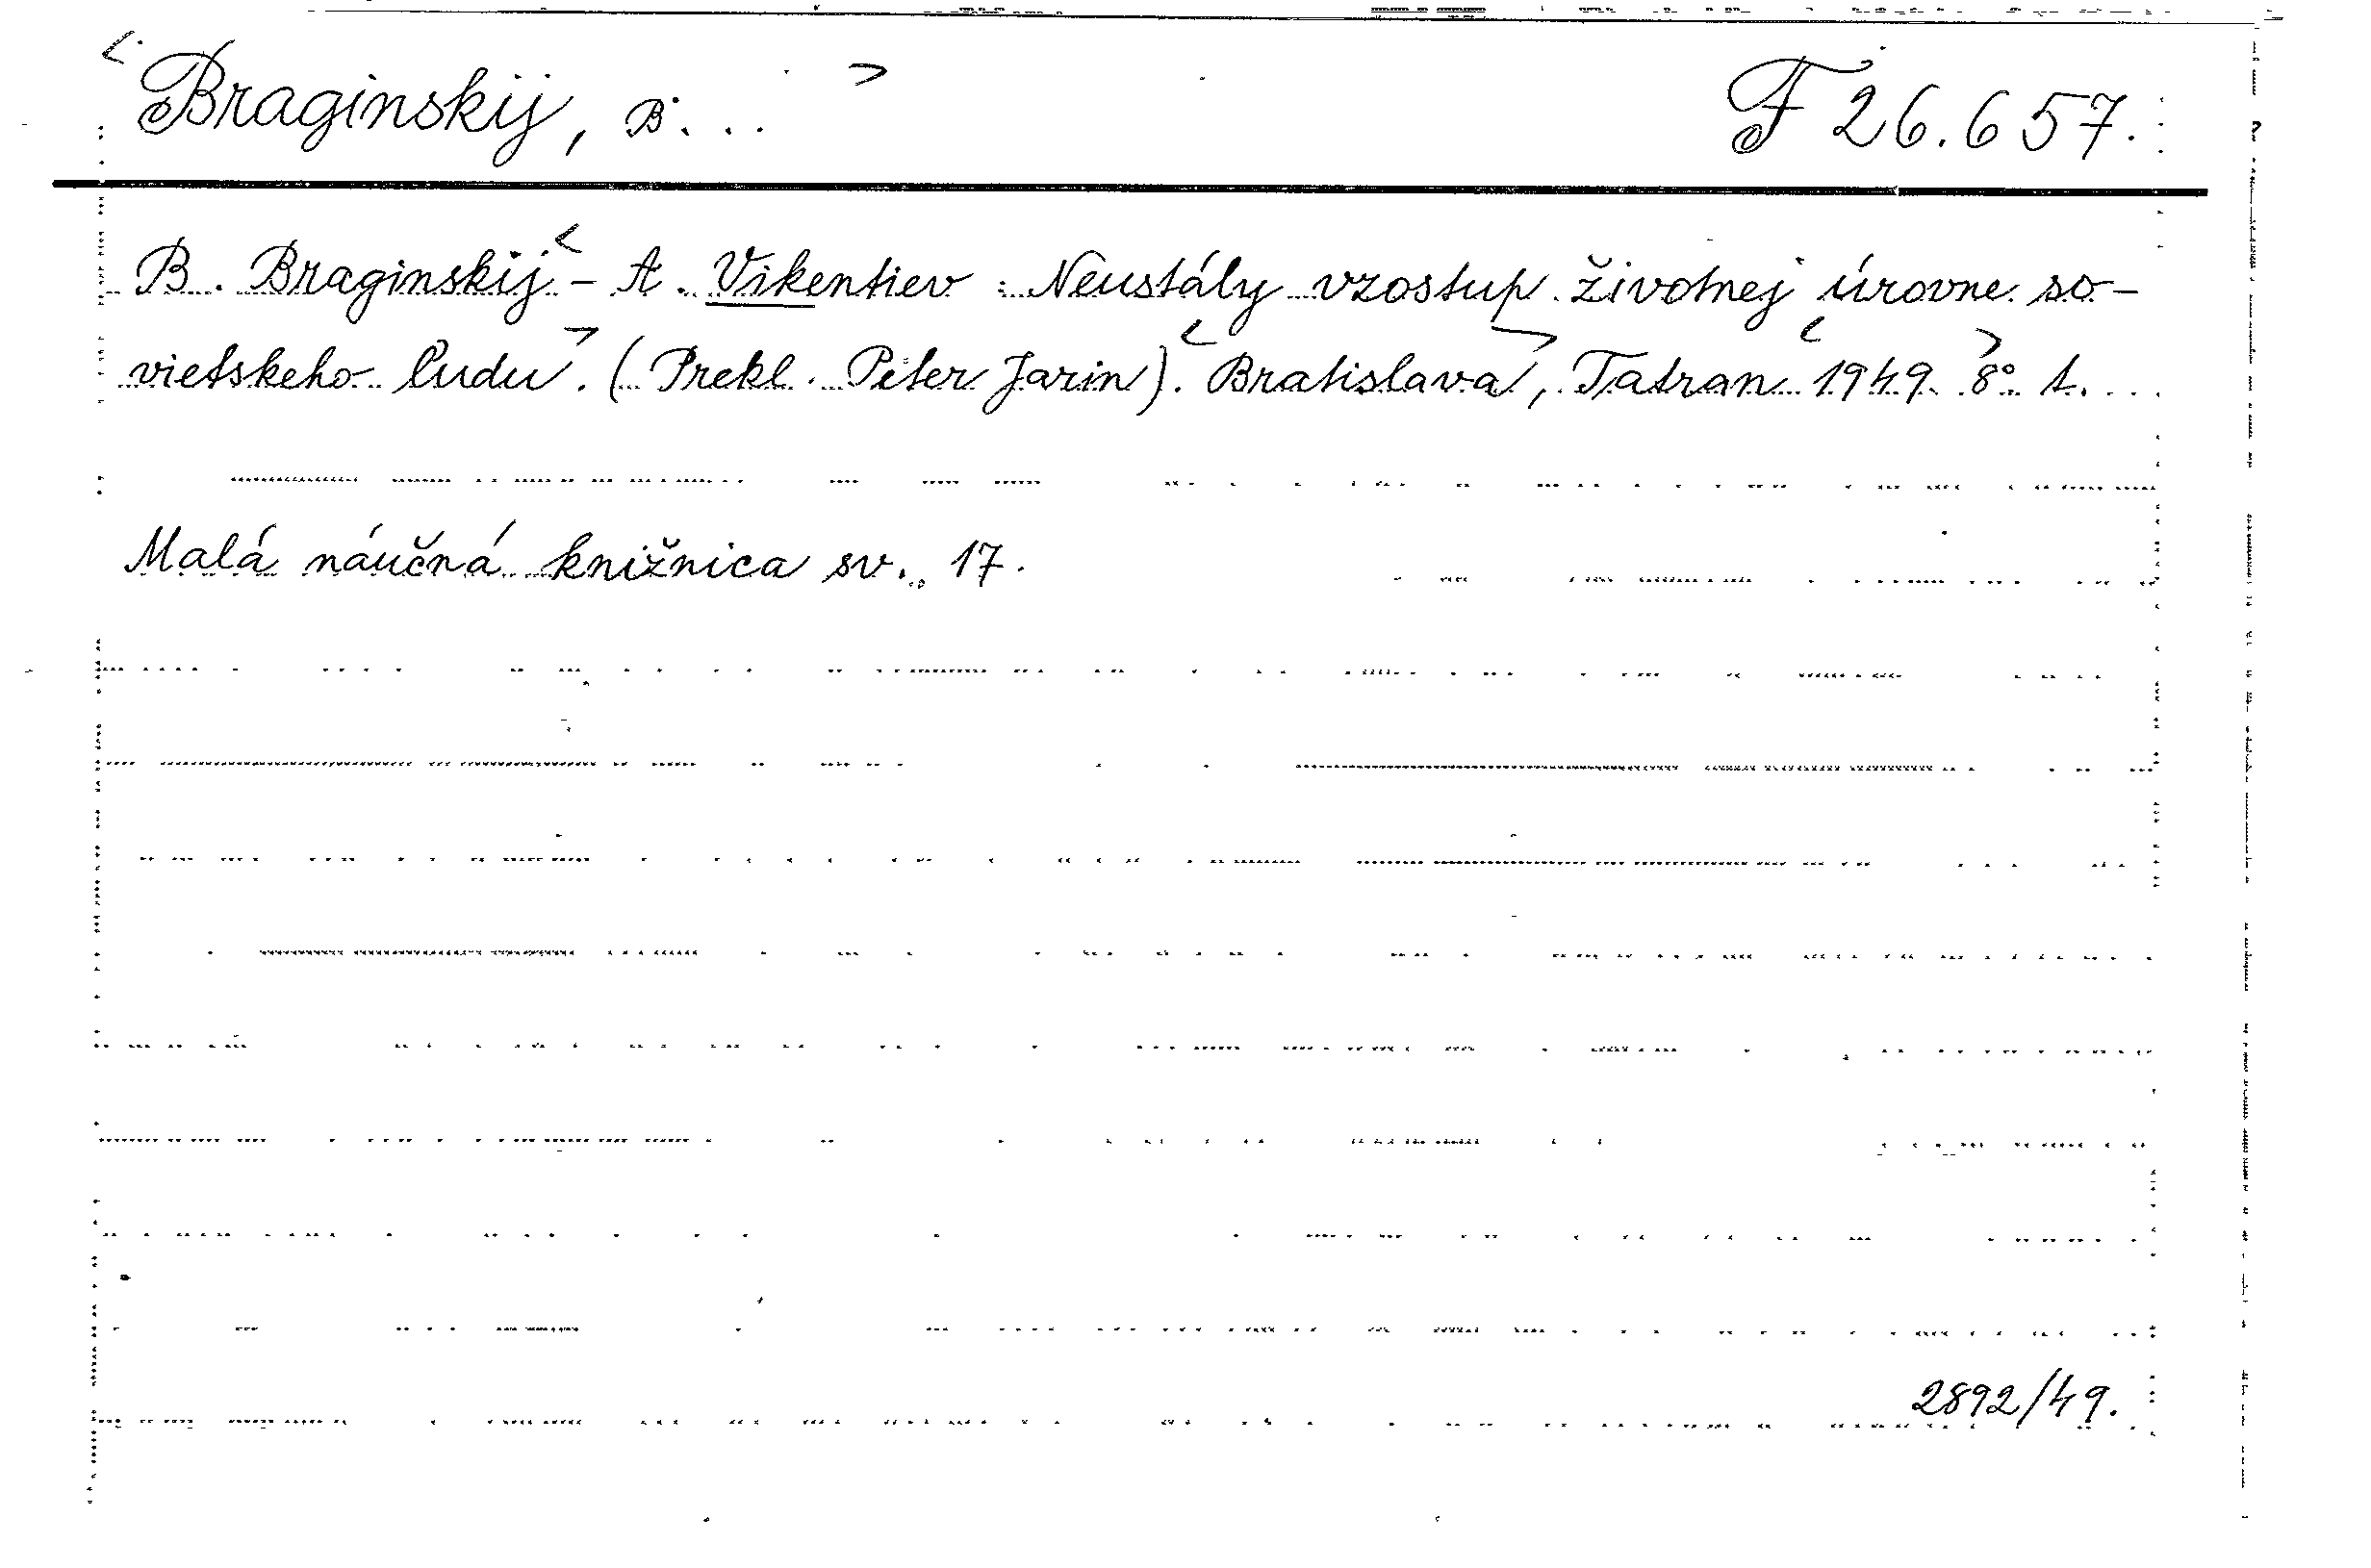 Braginskij, B... F 26.657.
B. Braginskij - A. Vikentiev: Neustály vzostup životnej úrovne so-
vietskeho ľudu. (Prekl. Peter Jarin). Bratislava, Tatran 1949. 8° 1. ...
Malá náučná knižnica sv. 17.
2892/49.